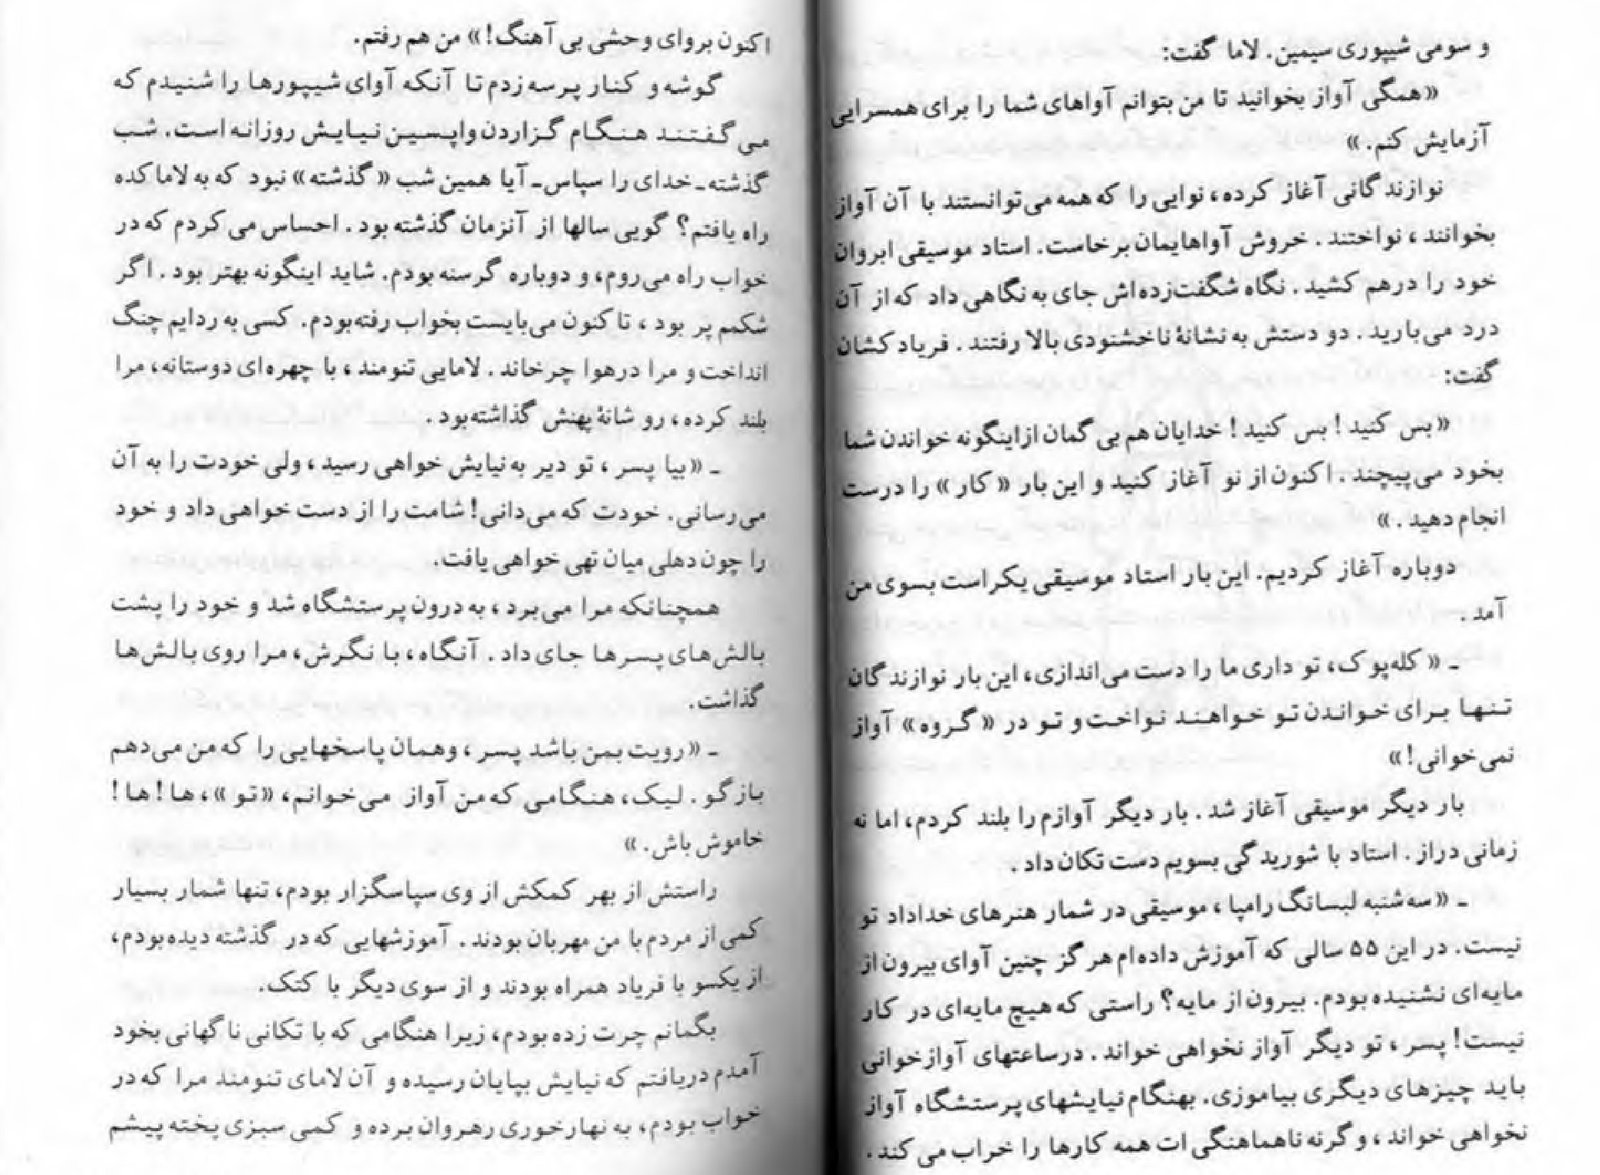 و سومی شیپوری سیمین. لاما گفت:
«همگی آواز بخوانید تا من بتوانم آواهای شما را برای همسرایی
آزمایش کنم.»
نوازندگانی آغاز کرده، نوایی را که همه می‌توانستند با آن آواز
بخوانند، نواختند. خروش آواهایمان برخاست. استاد موسیقی ابروان
خود را درهم کشید. نگاه شگفت‌زده‌اش جای به نگاهی داد که از آن
درد می‌بارید. دو دستش به نشانهٔ ناخشنودی بالا رفتند. فریاد کشان
گفت:
«بس کنید! بس کنید! خدایان هم بی گمان از اینگونه خواندن شما
بخود می‌پیچند. اکنون از نو آغاز کنید و این بار «کار» را درست
انجام دهید.»
دوباره آغاز کردیم. این بار استاد موسیقی یکراست بسوی من
آمد.
ـ «کله‌پوک، تو داری ما را دست می‌اندازی، این بار نوازندگان
تنها برای خواندن تو خواهند نواخت و تو در «گروه» آواز
نمی‌خوانی!»
بار دیگر موسیقی آغاز شد. بار دیگر آوازم را بلند کردم، اما نه
زمانی دراز. استاد با شوریدگی بسویم دست تکان داد.
ـ «سه‌شنبه لبسانگ رامپا، موسیقی در شمار هنرهای خداداد تو
نیست. در این ۵۵ سالی که آموزش داده‌ام هرگز چنین آوای بیرون از
مایه‌ای نشنیده بودم. بیرون از مایه؟ راستی که هیچ مایه‌ای در کار
نیست! پسر، تو دیگر آواز نخواهی خواند. درساعتهای آوازخوانی
باید چیزهای دیگری بیاموزی. بهنگام نیایشهای پرستشگاه آواز
نخواهی خواند، وگرنه ناهماهنگی ات همه کارها را خراب می کند.
اکنون بروای وحشی بی آهنگ!» من هم رفتم.
گوشه و کنار پرسه زدم تا آنکه آوای شیپورها را شنیدم که
می‌گفتند هنگام گزاردن واپسین نیایش روزانه است. شب
گذشته ـ خدای را سپاس ـ آیا همین شب «گذشته» نبود که به لاماکده
راه یافتم؟ گویی سالها از آنزمان گذشته بود. احساس می‌کردم که در
خواب راه می‌روم، و دوباره گرسنه بودم. شاید اینگونه بهتر بود. اگر
شکمم پر بود، تاکنون می‌بایست بخواب رفته‌بودم. کسی به ردایم چنگ
انداخت و مرا درهوا چرخاند. لامایی تنومند، با چهره‌ای دوستانه، مرا
بلند کرده، رو شانهٔ پهنش گذاشته‌بود.
ـ «بیا پسر، تو دیر به نیایش خواهی رسید، ولی خودت را به آن
می‌رسانی. خودت که می‌دانی! شامت را از دست خواهی داد و خود
را چون دهلی میان تهی خواهی یافت.
همچنانکه مرا می‌برد، به درون پرستشگاه شد و خود را پشت
بالش‌های پسرها جای داد. آنگاه، با نگرش، مرا روی بالش‌ها
گذاشت.
ـ «رویت بمن باشد پسر، وهمان پاسخهایی را که من می‌دهم
بازگو. لیک، هنگامی که من آواز می‌خوانم، «تو»، ها! ها!
خاموش باش.»
راستش از بهر کمکش از وی سپاسگزار بودم، تنها شمار بسیار
کمی از مردم با من مهربان بودند. آموزشهایی که در گذشته دیده‌بودم،
از یکسو با فریاد همراه بودند و از سوی دیگر با کتک.
بگمانم چرت زده بودم، زیرا هنگامی که با تکانی ناگهانی بخود
آمدم دریافتم که نیایش بپایان رسیده و آن لامای تنومند مرا که در
خواب بودم، به نهارخوری رهروان برده و کمی سبزی پخته پیشم